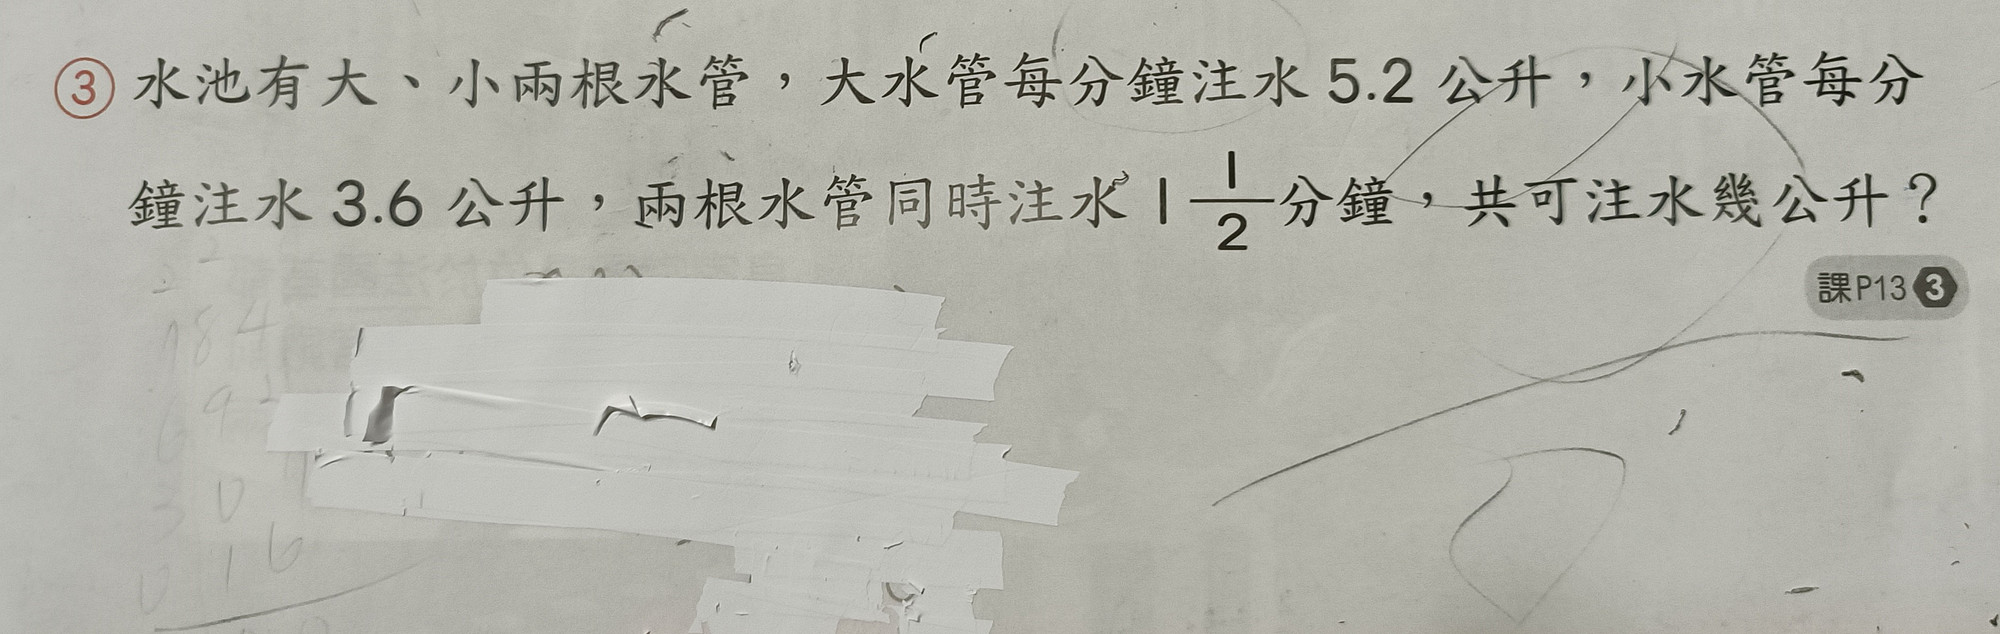 ③ 水池有大、小兩根水管，大水管每分鐘注水 5.2 公升，小水管每分
鐘注水 3.6 公升，兩根水管同時注水 1 1/2 分鐘，共可注水幾公升？
課P13 3